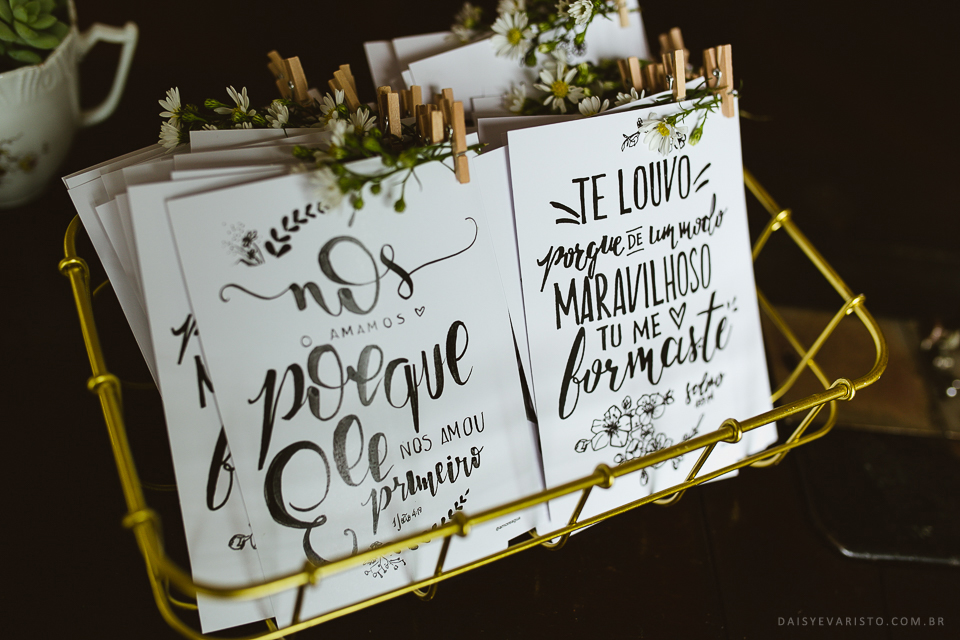 nós
O AMAMOS
porque
Ele
NOS AMOU
primeiro
TE LOUVO
porque DE um modo
MARAVILHOSO
TU ME
formaste
Salmo
DAISYEVARISTO.COM.BR